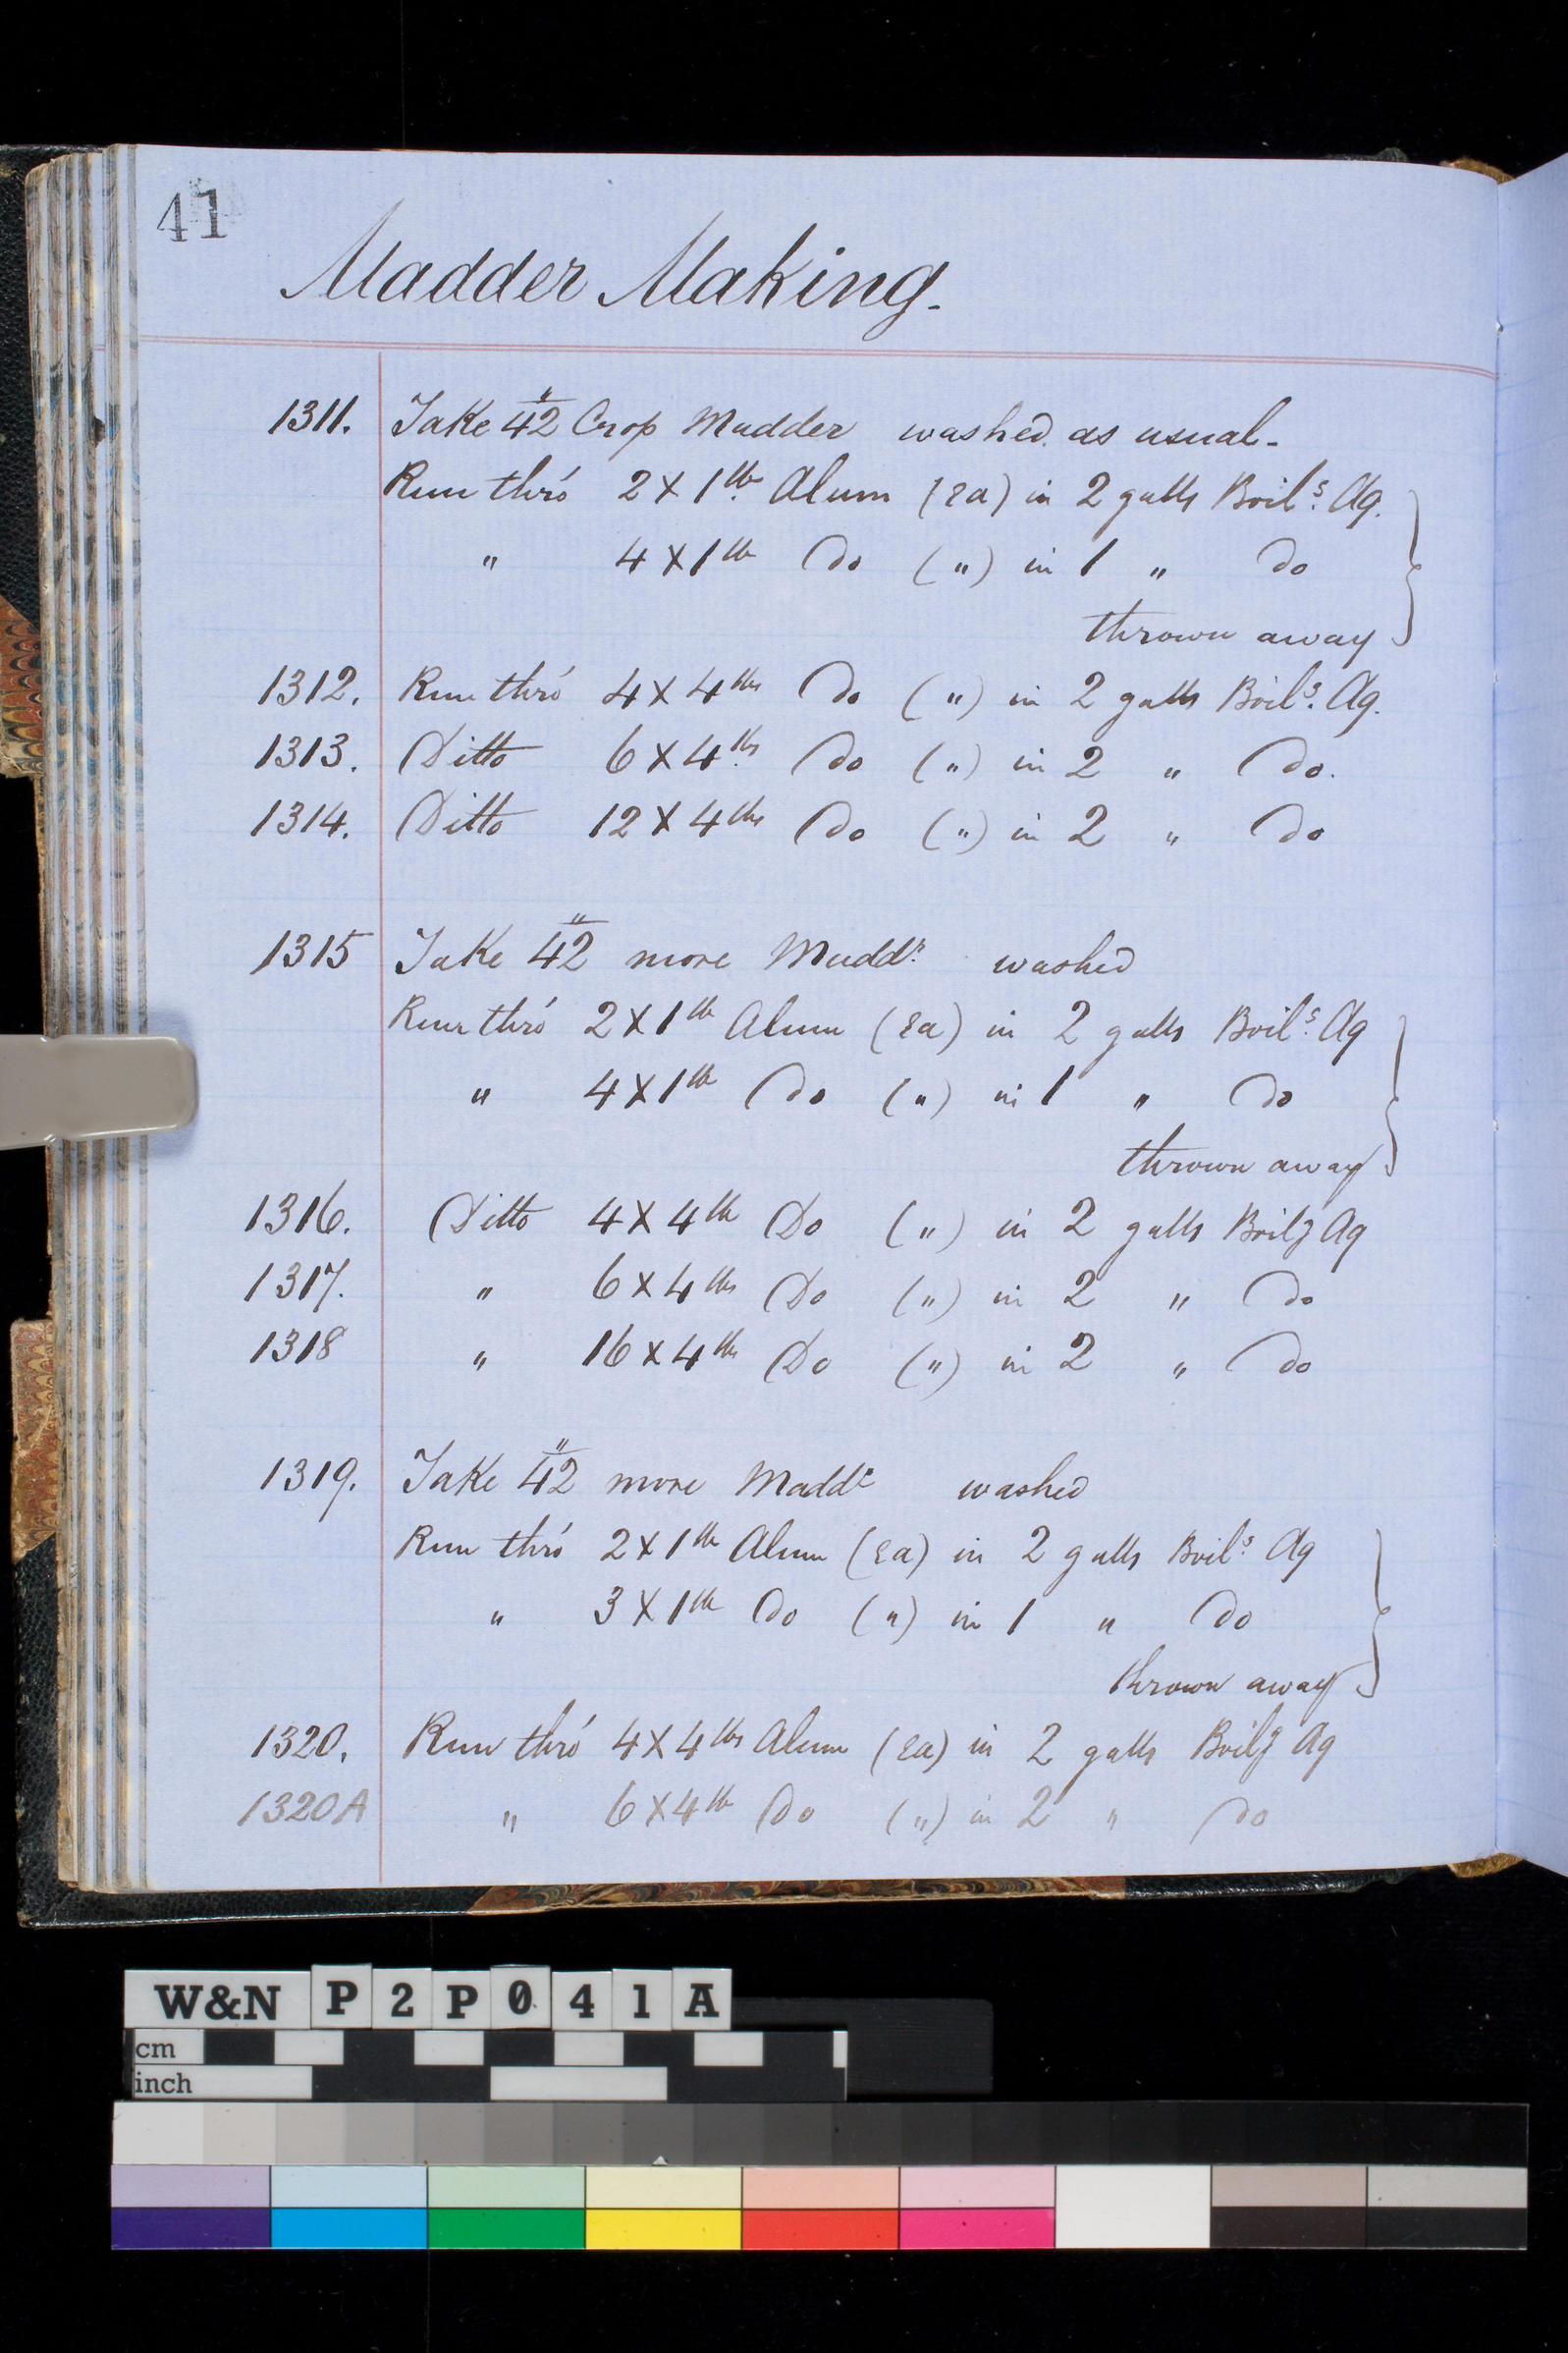 41
Madder Making.
1311. Take 42" Crop Madder washed as usual.
Run thro' 2 x 1lb Alum (Ea) in 2 galls Boilg Aq.
" 4 x 1lb Do (") in 1 " Do
thrown away
1312. Run thro' 4 x 4lbs Do (") in 2 galls Boilg Aq.
1313. Ditto 6 x 4lbs Do (") in 2 " Do.
1314. Ditto 12 x 4lbs Do (") in 2 " Do
1315 Take 42" more Maddr washed
Run thro' 2 x 1lb Alum (Ea) in 2 galls Boilg Aq
" 4 x 1lb Do (") in 1 " Do
thrown away
1316. Ditto 4 x 4lb Do (") in 2 galls Boilg Aq
1317. " 6 x 4lbs Do (") in 2 " Do
1318 " 16 x 4lbs Do (") in 2 " Do
1319. Take 42" more Maddr washed
Run thro' 2 x 1lb Alum (Ea) in 2 galls Boilg Aq
" 3 x 1lb Do (") in 1 " Do
thrown away
1320. Run thro' 4 x 4lbs Alum (Ea) in 2 galls Boilg Aq
1320A " 6 x 4lb Do (") in 2 " Do
W&N P2P041A
cm
inch